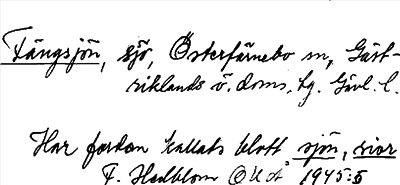 Fängsjön, sjö, Österfärnebo sn, Gäst-
riklands ö. doms. tg. Gävl. l.
Har fordom kallats blott sjön, sior
F. Hedblom OUÅ 1945:5